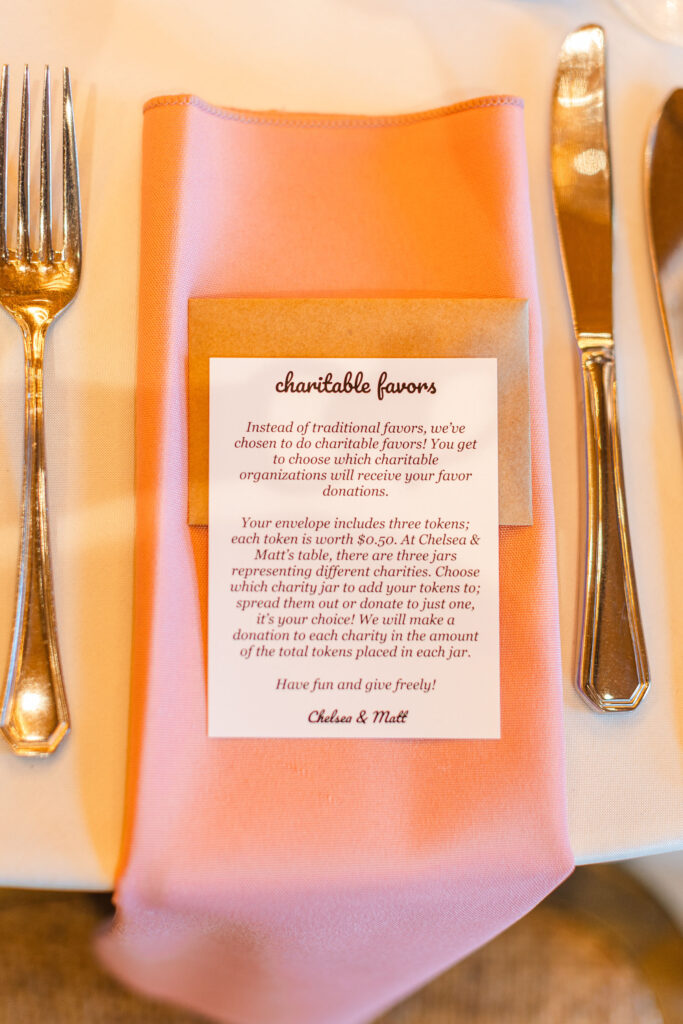 charitable favors
Instead of traditional favors, we've
chosen to do charitable favors! You get
to choose which charitable
organizations will receive your favor
donations.
Your envelope includes three tokens;
each token is worth $0.50. At Chelsea &
Matt's table, there are three jars
representing different charities. Choose
which charity jar to add your tokens to;
spread them out or donate to just one,
it's your choice! We will make a
donation to each charity in the amount
of the total tokens placed in each jar.
Have fun and give freely!
Chelsea & Matt